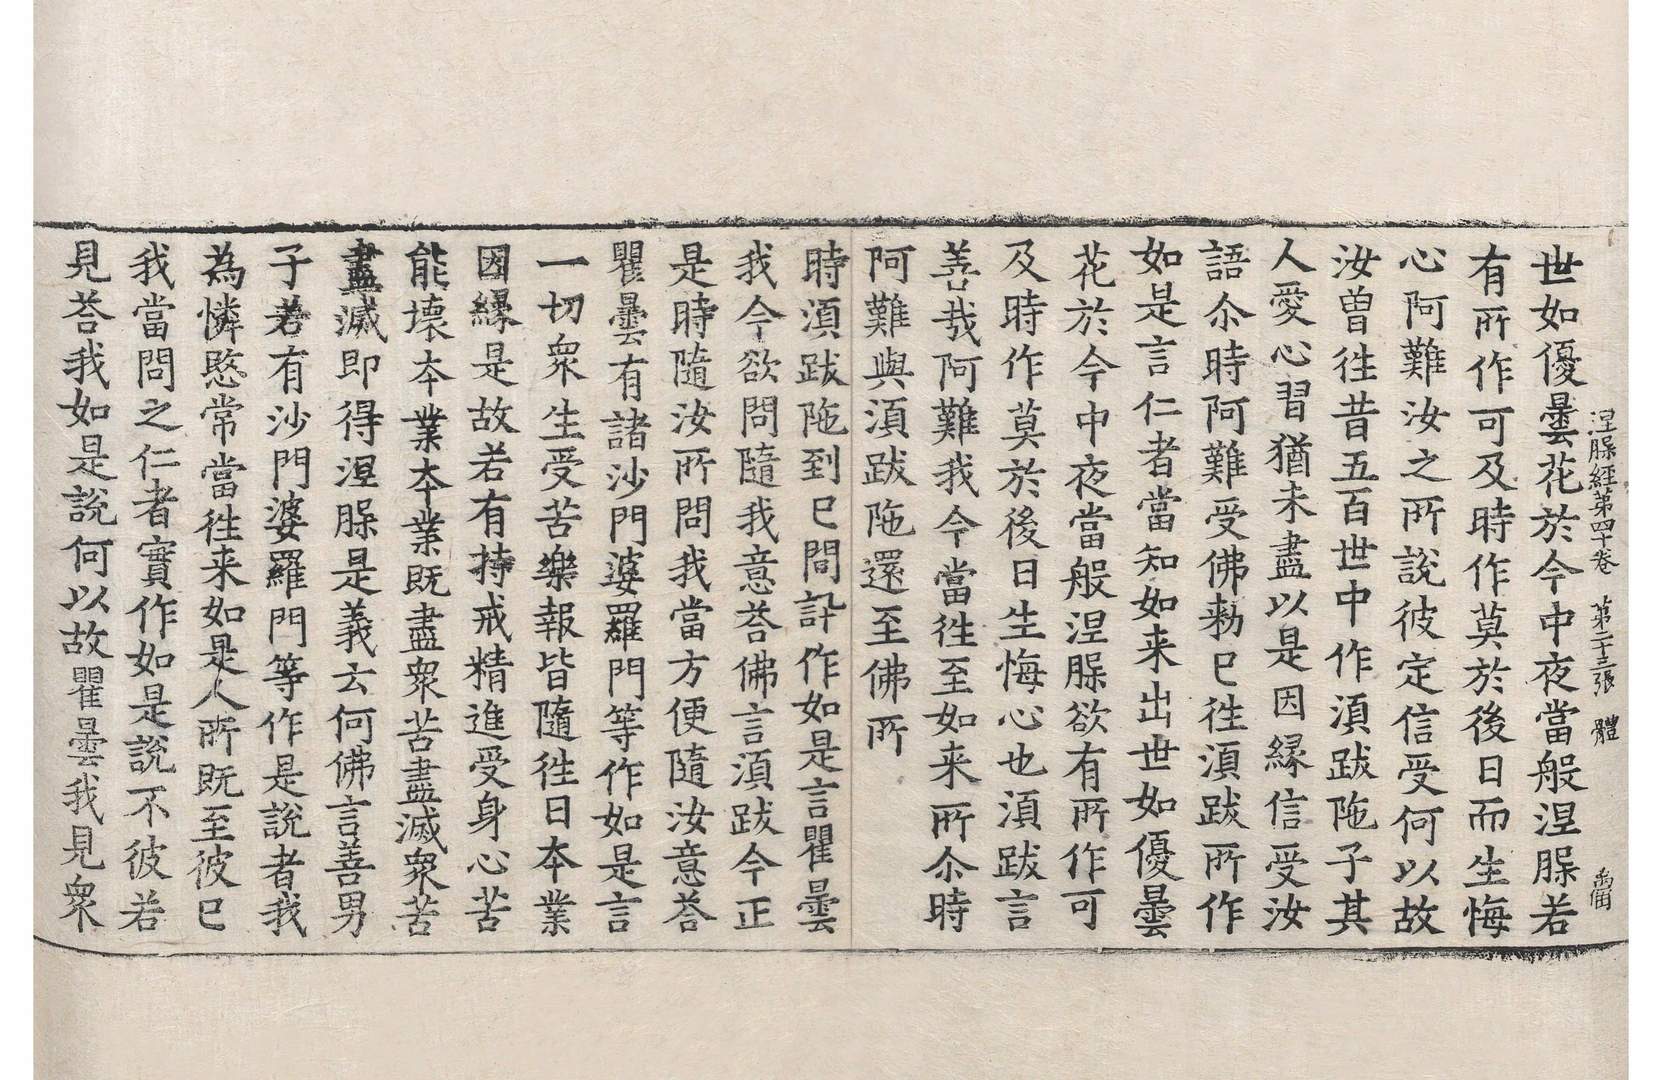 涅槃經第四十卷 第二十三張 體
世如優曇花於今中夜當般涅槃若
有所作可及時作莫於後日而生悔
心阿難汝之所說彼定信受何以故
汝曾徃昔五百世中作湏跋陁子其
人愛心習猶未盡以是因緣信受汝
語尒時阿難受佛勑已徃湏跋所作
如是言仁者當知如来出世如優曇
花於今中夜當般涅槃欲有所作可
及時作莫於後日生悔心也湏跋言
善哉阿難我今當徃至如来所尒時
阿難與湏跋陁還至佛所
時湏跋陁到已問訊作如是言瞿曇
我今欲問隨我意荅佛言湏跋今正
是時隨汝所問我當方便隨汝意荅
瞿曇有諸沙門婆羅門等作如是言
一切衆生受苦樂報皆隨徃日本業
因緣是故若有持戒精進受身心苦
能壞本業本業既盡衆苦盡滅衆苦
盡滅即得涅槃是義云何佛言善男
子若有沙門婆羅門等作是說者我
為憐愍常當徃来如是人所既至彼已
我當問之仁者實作如是說不彼若
見荅我如是說何以故瞿曇我見衆